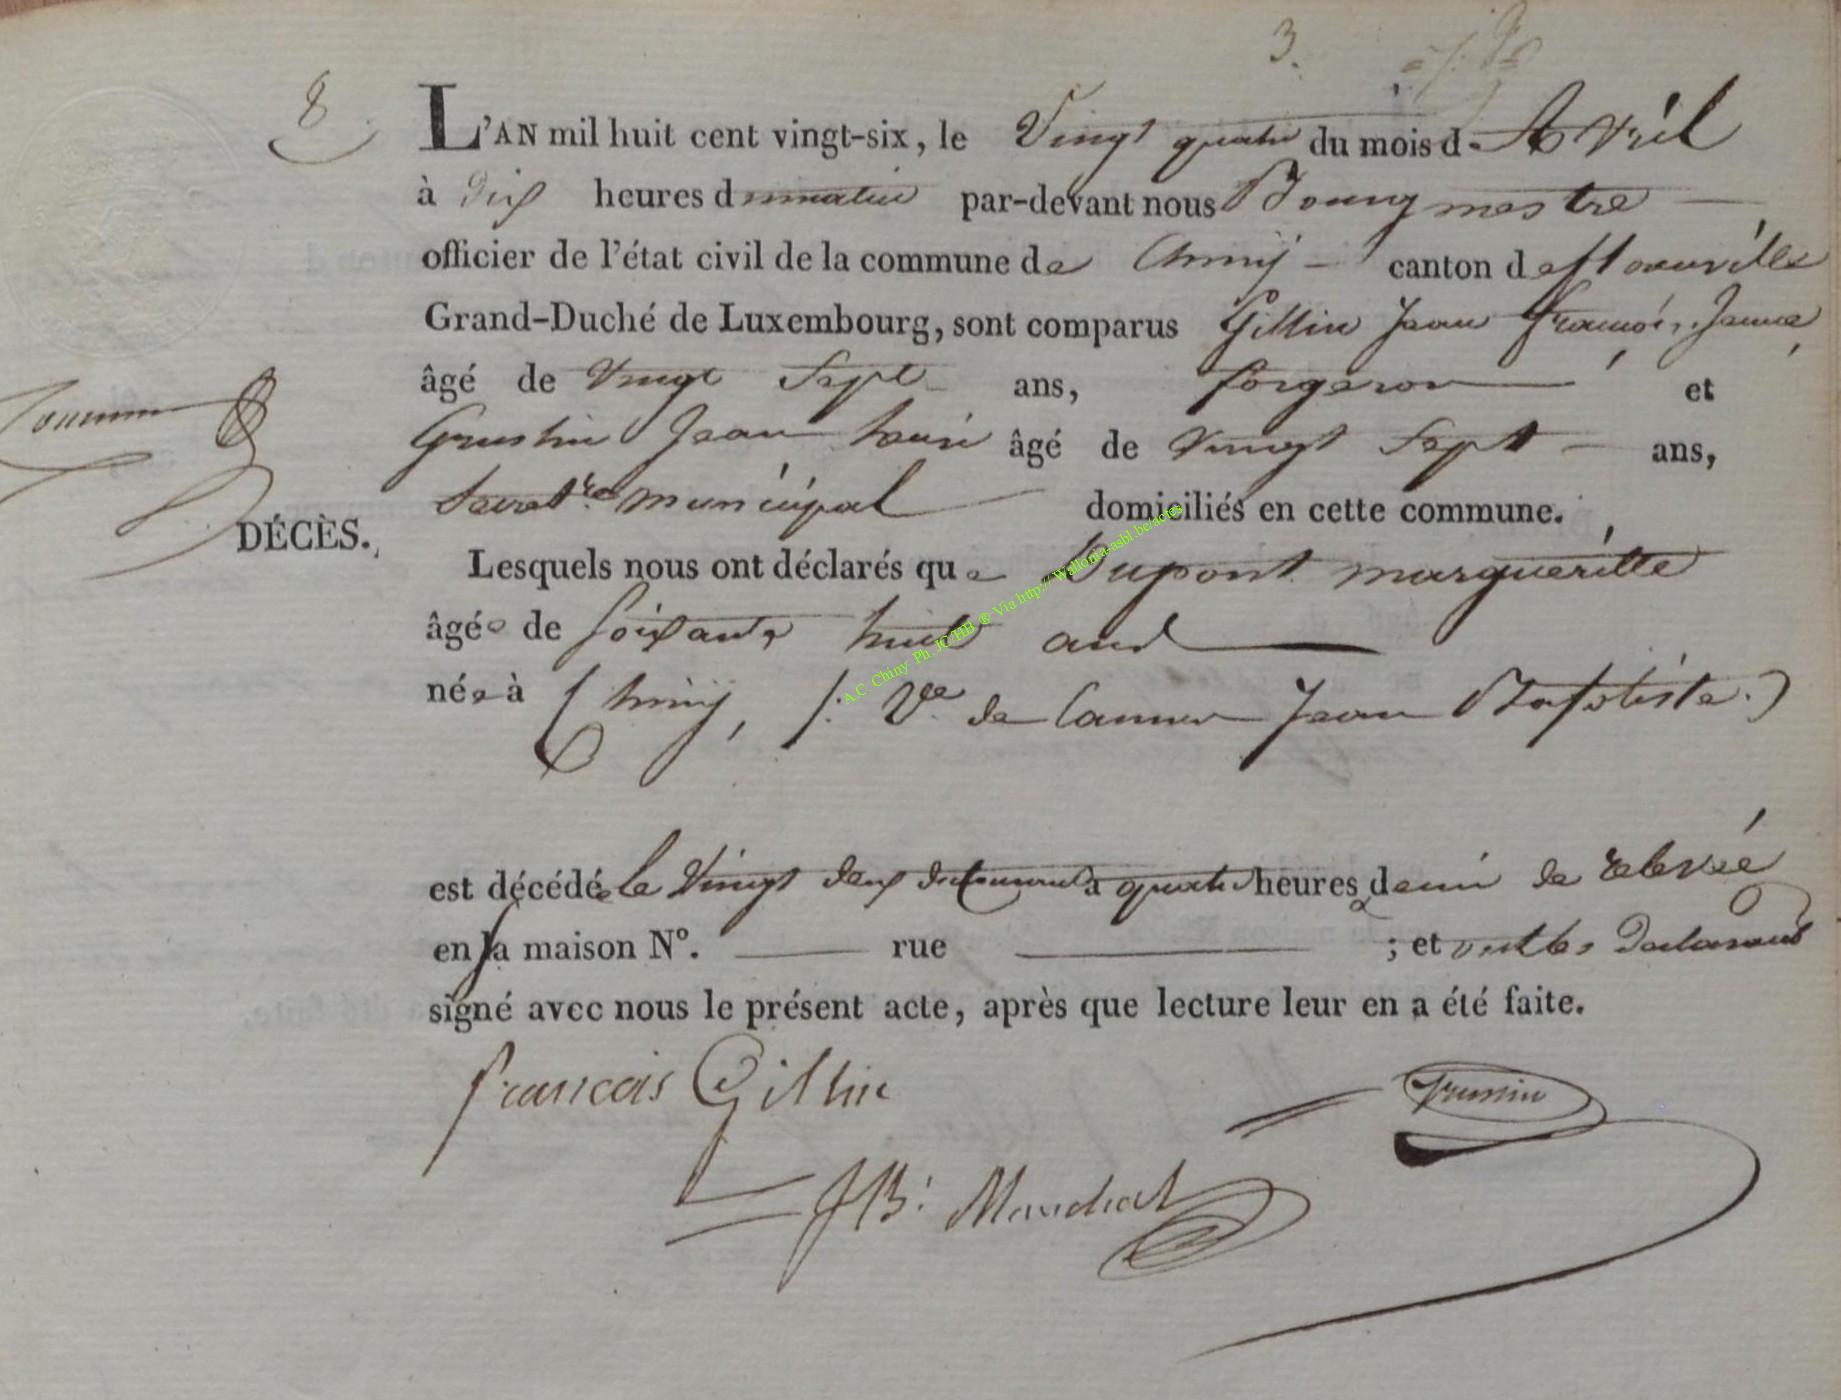 3.
8
L'AN mil huit cent vingt-six, le Vingt quatre du mois d'Avril
à Dix heures du matin par-devant nous Bourgmestre
officier de l'état civil de la commune de Chiny canton de florenville
Grand-Duché de Luxembourg, sont comparus Gillin Jean François Jeune,
âgé de Vingt Sept ans, forgeron et
Jean Louis âgé de Vingt Sept ans,
Secret.re municipal domiciliés en cette commune.
DÉCÈS.
Lesquels nous ont déclarés que Dupont margueritte
âgée de Soixante huit ans
née à Chiny, /: Ve. de Jean Baptiste :)
est décédée le Vingt deux du Courant à quatre heures demi de relevée
en sa maison N°. rue ; et ont les Déclarants
signé avec nous le présent acte, après que lecture leur en a été faite.
francois Gillin
JB: Manchat
A.C. Chiny Ph. JC HB ® Via http://Wallonia-asbl.be/actes